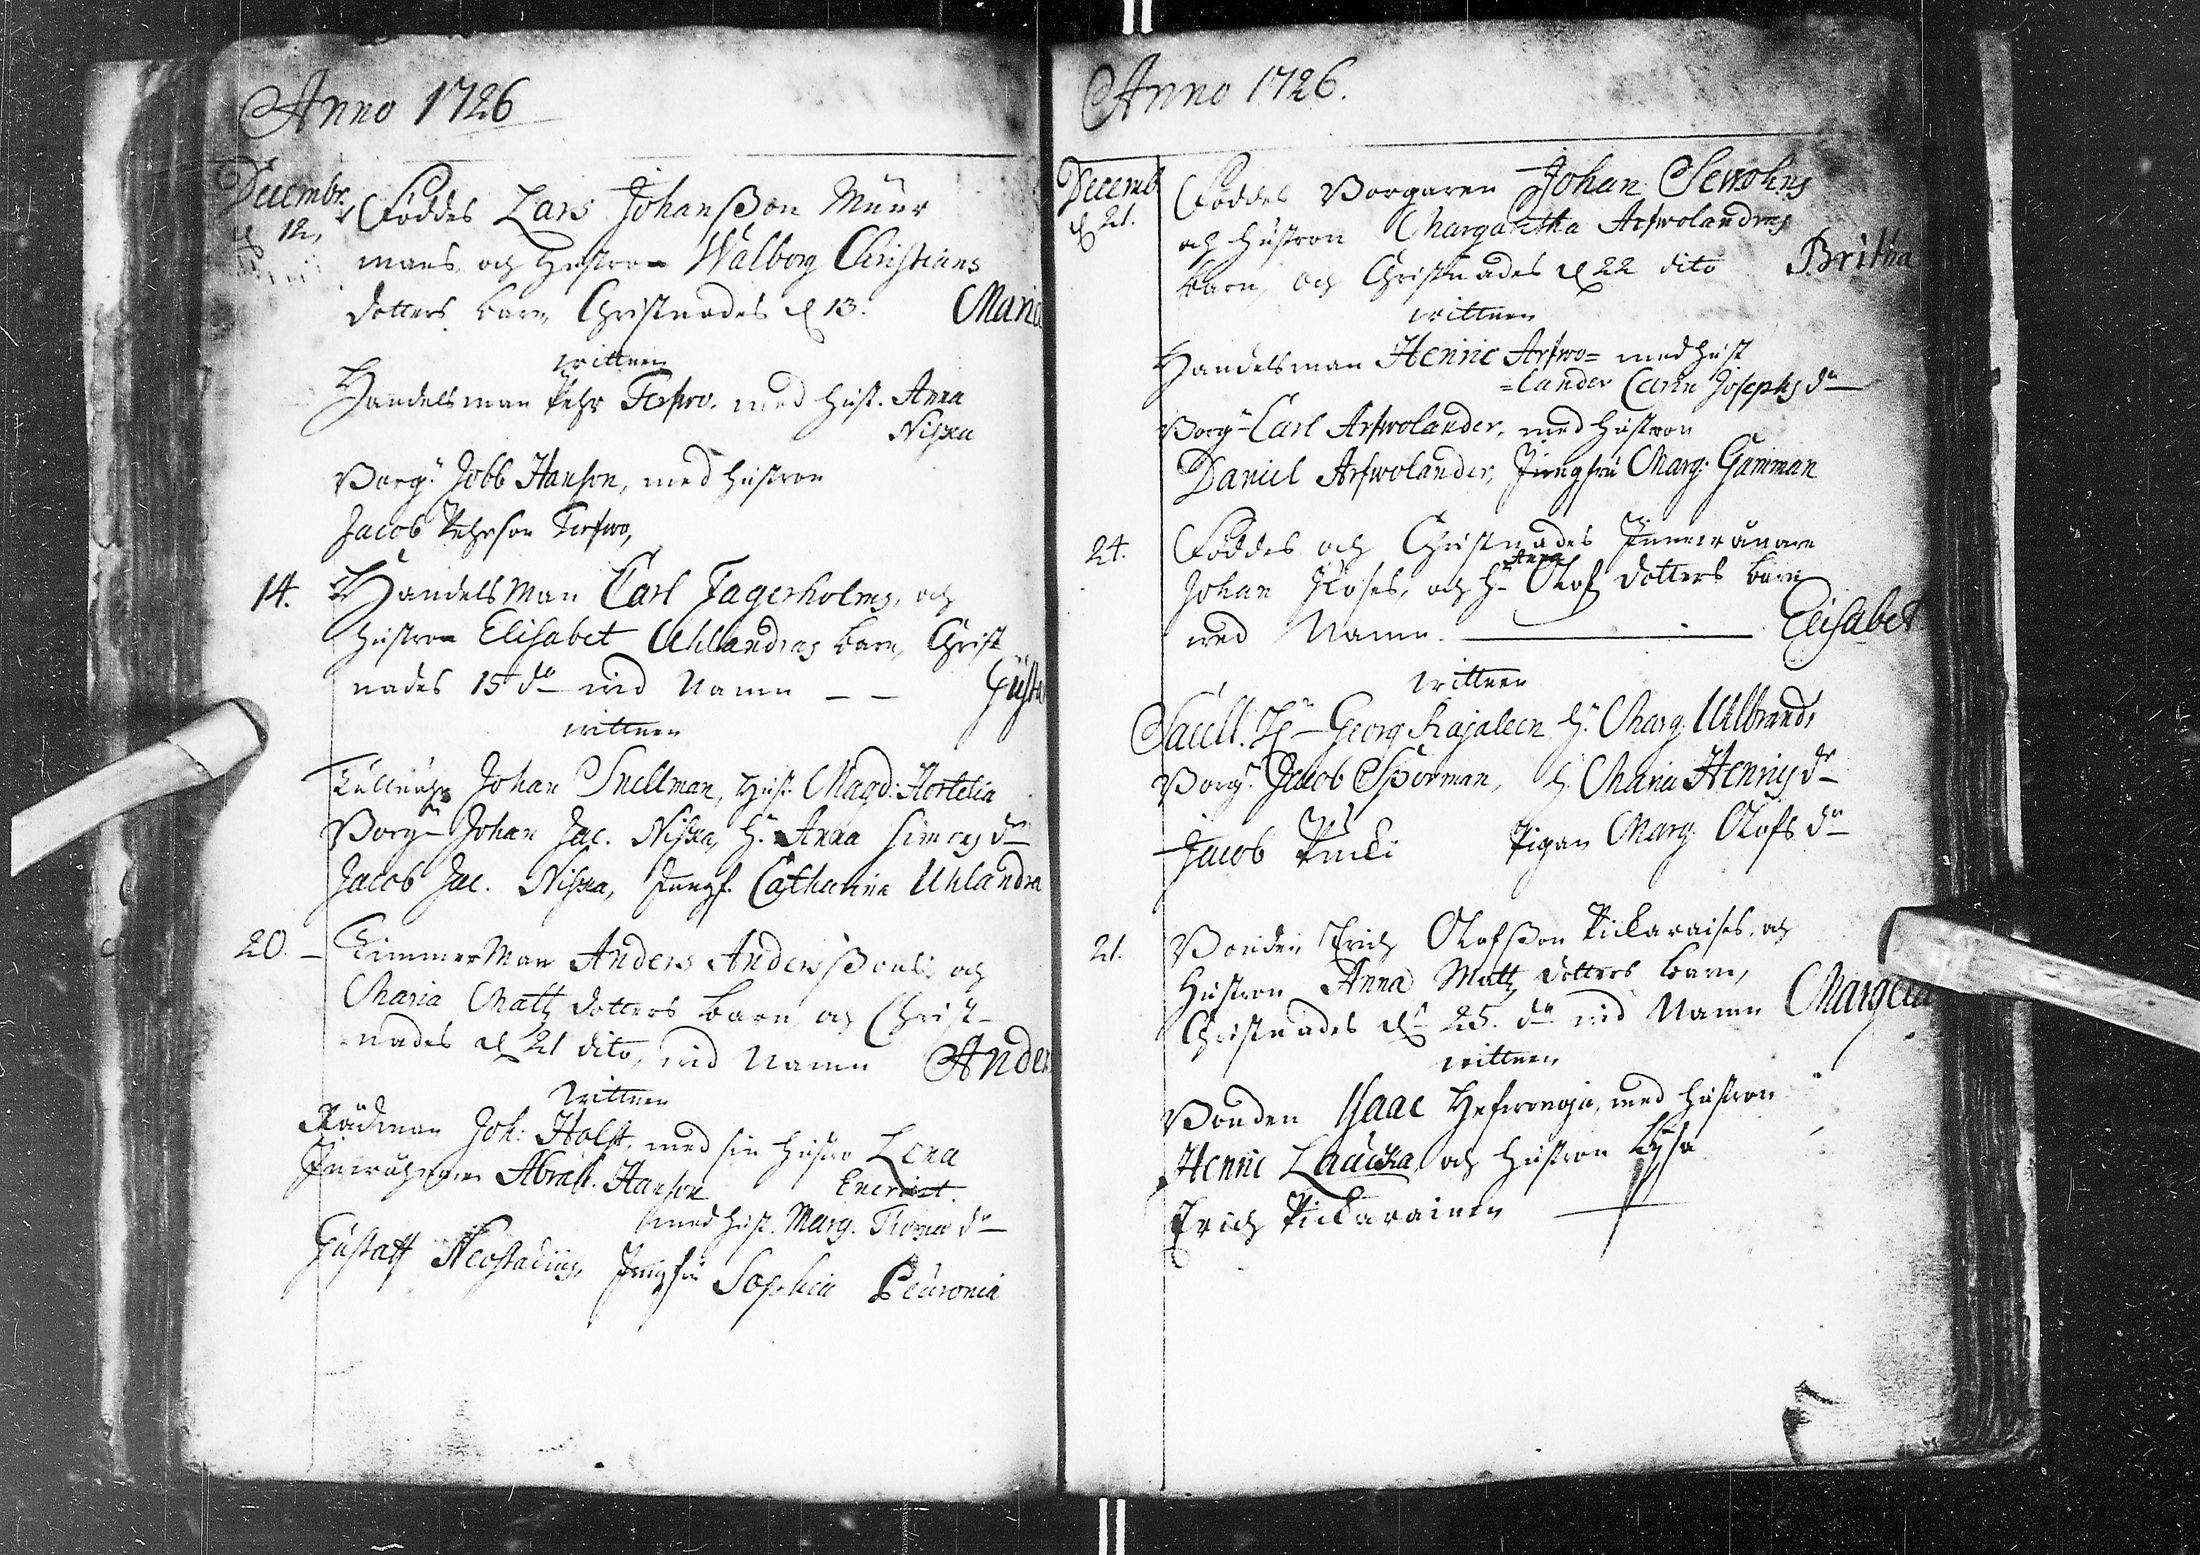 Anno 1726
Decembr. Föddes Lars Johanßon Muur
d 12,
mans och Hustron Walborg Christians
dotters barn, Christnades d 13. Maria
wittnen
Handelsman Pehr Forswo. med Hust. Anna
Niska
Borg. Jobb Hanson, med hustron
Jacob Pehrson Forswo,
14. Handels Man Carl Fagerholms, och
hustron Elisabet Uhlandras barn, Christ
nades 15 do med Namn — — Gusta
wittnen
Johan Snellman, Hust. Magd: Hortelia
Borg. Johan Jac. Niska, H. Anna Simons dr
Jacob Jac. Niska, Jungf. Catharina Uhlandra
20. — Timmer Man Anders Anderßons och
Maria Matz dotters barn, och Christ-
nades d 21 dito, med Namn Anders
wittnen
Rådman Joh: Holst, med sin hustro Lena
Abrah. Hanson
med hust. Marg. Thomas dr
Gustaff Neostadius, Jungfru Sophia Peuronia
Anno 1726.
Decemb Föddes Borgaren Johan
d 21.
och hustron Margaretha Arfwolandras
barn, och Christnades d 22 dito Britha
wittnen
Handelsman Henric Arfwo= med hust
=lander Carin Josephs dr
Borg. Carl Arfwolander, med hustron
Daniel Arfwolander, Jungfru Marg. Gamman
24. Föddes och Christnades Inwånare
Anna
Johan Roses, och H. Olofs dotters barn
med Namn. — Elisabet
wittnen
Georg Kajaleen H. Marg. Uhlbrands
Borg. Jacob Sporman, H. Maria Henrics dr
Jacob Pigan Marg. Olofs dr
21. Bonden Erich Olofßon Pickaraises, och
Hustron Anna Matz dotters barn,
Christnades d 25. do med Namn Margeta
wittnen
Bonden Isaac med hustron
Henric Laucka, och hustron Lysa
Erich Pickarainen